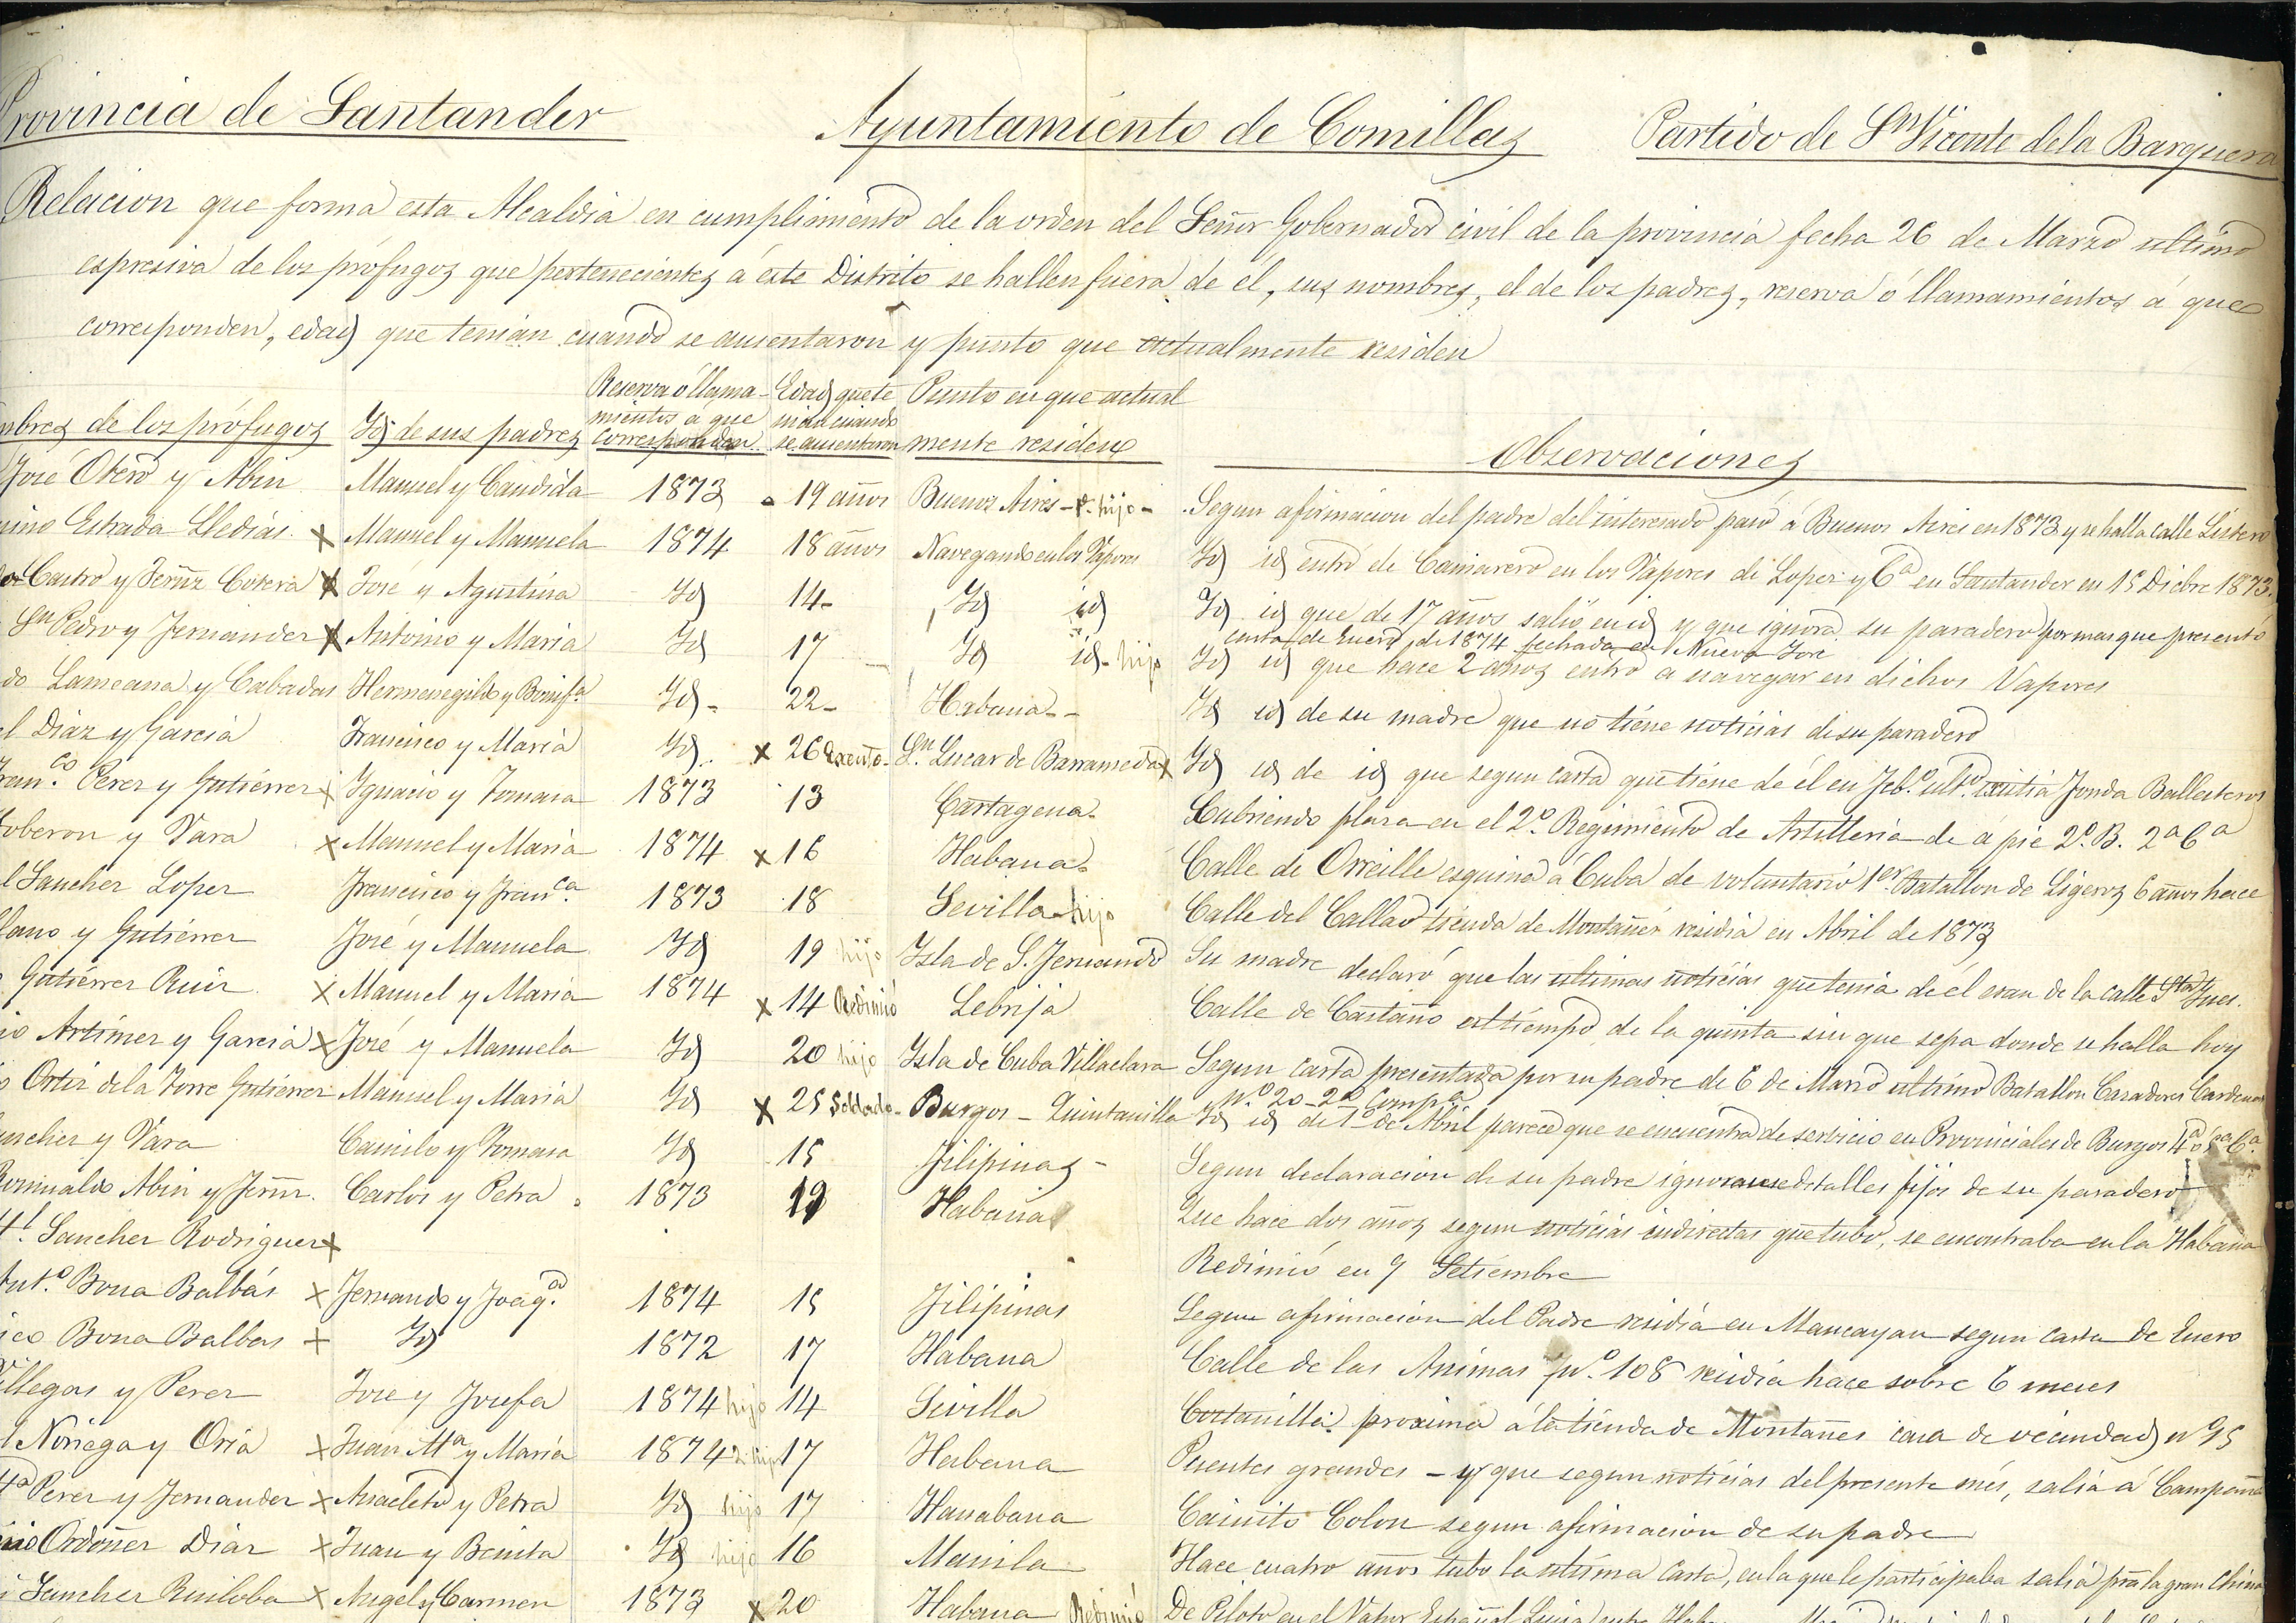 Provincia de Santander Ayuntamiento de Comillas Partido de Sn Vicente de la Barquera
Relacion que forma esta Alcaldia en cumplimiento de la orden del Señor Gobernador civil de la provincia fecha 26 de Marzo ultimo
espresiva de los prófugos que pertenecientes á este Distrito se hallen fuera de él, sus nombres, el de los padres, reserva ó llamamientos á que
corresponden, edad que tenian cuando se ausentaron y punto que actualmente residen
mbres de los prófugos Id de sus padres Reserva ó llama- mientos á que corresponden Edad que te nian cuando se ausentaron Punto en que actual mente residen Observaciones
José Otero y Abin Manuel y Candida 1873 19 años Buenos Aires - hijo - Segun afirmacion del padre del interesado pasó á Buenos Aires en 1873 y se halla calle
Estrada Lledias x Manuel y Manuela 1874 18 años Navegando en los Vapores Id id entró de Camarero en los Vapores de Lopez y Cª en Santander en 15 Dicbre 1873.
Castro y Fernz Cotera x Jose y Agustina Id 14- Id id Id id que de 17 años salió en id y que ignora su paradero por mas que presentó
carta de Enero de 1874 fechada en Nueva Jor
Sn Pedro y Fernandez x Antonio y Maria Id 17 Id id- hijo Id id que hace 2 años entró a navegar en dichos Vapores
do Lameana y Cabadas Hermenegildo y Bonifª Id- 22- Habana - - Id id de su madre que no tiene noticias de su paradero
l Diaz y Garcia Francisco y Maria Id.. x 26 Exento- Sn Lucar de Barrameda x Id id de id que segun carta que tiene de él en Feb.º ult.º Fonda Ballesteros
Fran.co Perez y Gutiérrez x Ygnacio y Tomasa 1873 13 Cartagena- Cubriendo plaza en el 2º. Regimiento de Artilleria de á pie 2º. B. 2ª Cª
Toberon y Vara x Manuel y Maria 1874 x 16 Habana- Calle de Orreille esquina á Cuba de voluntario 1er. Batallon de Ligeros 6 años hace
l Sanchez Lopez Francisco y Franca. 1873 18 Sevilla- hijo Calle del Callao tienda de Montañés residia en Abril de 1873
llano y Gutiérrez José y Manuela Id 19 hijo Isla de S. Fernando Su madre declaró que las ultimas noticias que tenia de él eran de la calle Sta Ynes.
Gutiérrez Ruiz x Manuel y Maria 1874 x 14 Redimió Lebrija Calle de Castaño al tiempo de la quinta sin que sepa donde se halla hoy
io Artimez y Garcia x José y Manuela Id 20 hijo Isla de Cuba Villaclara Segun carta presentada por su padre de 6 de Marzo ultimo Batallon Cazadores Cardenas
Nº 20 - 2ª Compª
o Ortiz de la Torre Gutiérrez Manuel y Maria Id x 25 Soldado- Burgos - Quintanilla Id id de 1º de Abril parece que se encuentra de servicio en Provinciales de Burgos
nchez y Vara Camilo y Tomasa Id 15 Filipinas - Segun declaracion de su padre ignoranse detalles fijos de su paradero
Romualdo Abin y Fernz. Carlos y Petra 1873 19 Habana Que hace dos años segun noticias indirectas que tubo, se encontraba en la Habana
Ml Sanchez Rodriguez x Redimió en 9 Setiembre
Ant.º Bona Balbás x Fernando y Joaqª. 1874 15 Filipinas Segun afirmacion del Padre residia en Mancayan segun carta de Enero
ico Bona Balbas + Id 1872 17 Habana Calle de las Animas Nº. 108 residia hace sobre 6 meses
illegas y Perez Jose y Josefa 1874 hijo 14 Sevilla Costanilla proxima á la tienda de Montañes casa de vecindad nº 95
l Noriega y Oria x Juan Mª y Maria 1874 2 hijo 17 Habana Puentes grandes - y que segun noticias del presente mes, salia á Campaña
Perez y Fernandez x Anacleto y Petra Id hijo 17 Hanabana Caimito Colon segun afirmacion de su padre
Ordoñez Diaz x Juan y Benita Id hijo 16 Manila Hace cuatro años tubo la ultima carta, en la que le participaba salia pra la gran China
Sanchez Ruiloba x Angel y Carmen 1873 x 20 Habana Redimió De Piloto en el Vapor Español